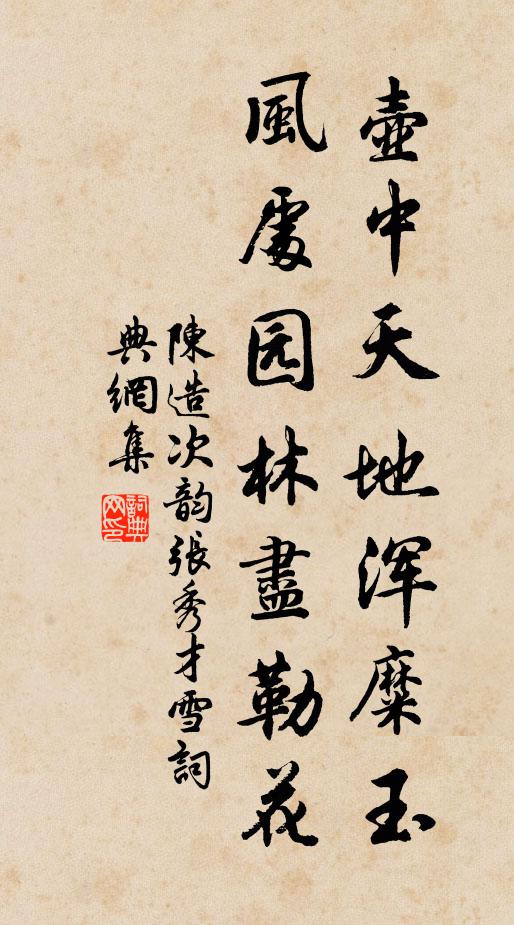 壺中天地浑糜玉
風處园林盡勒花
陳造次韵張秀才雪詞
典網集
詞典網印